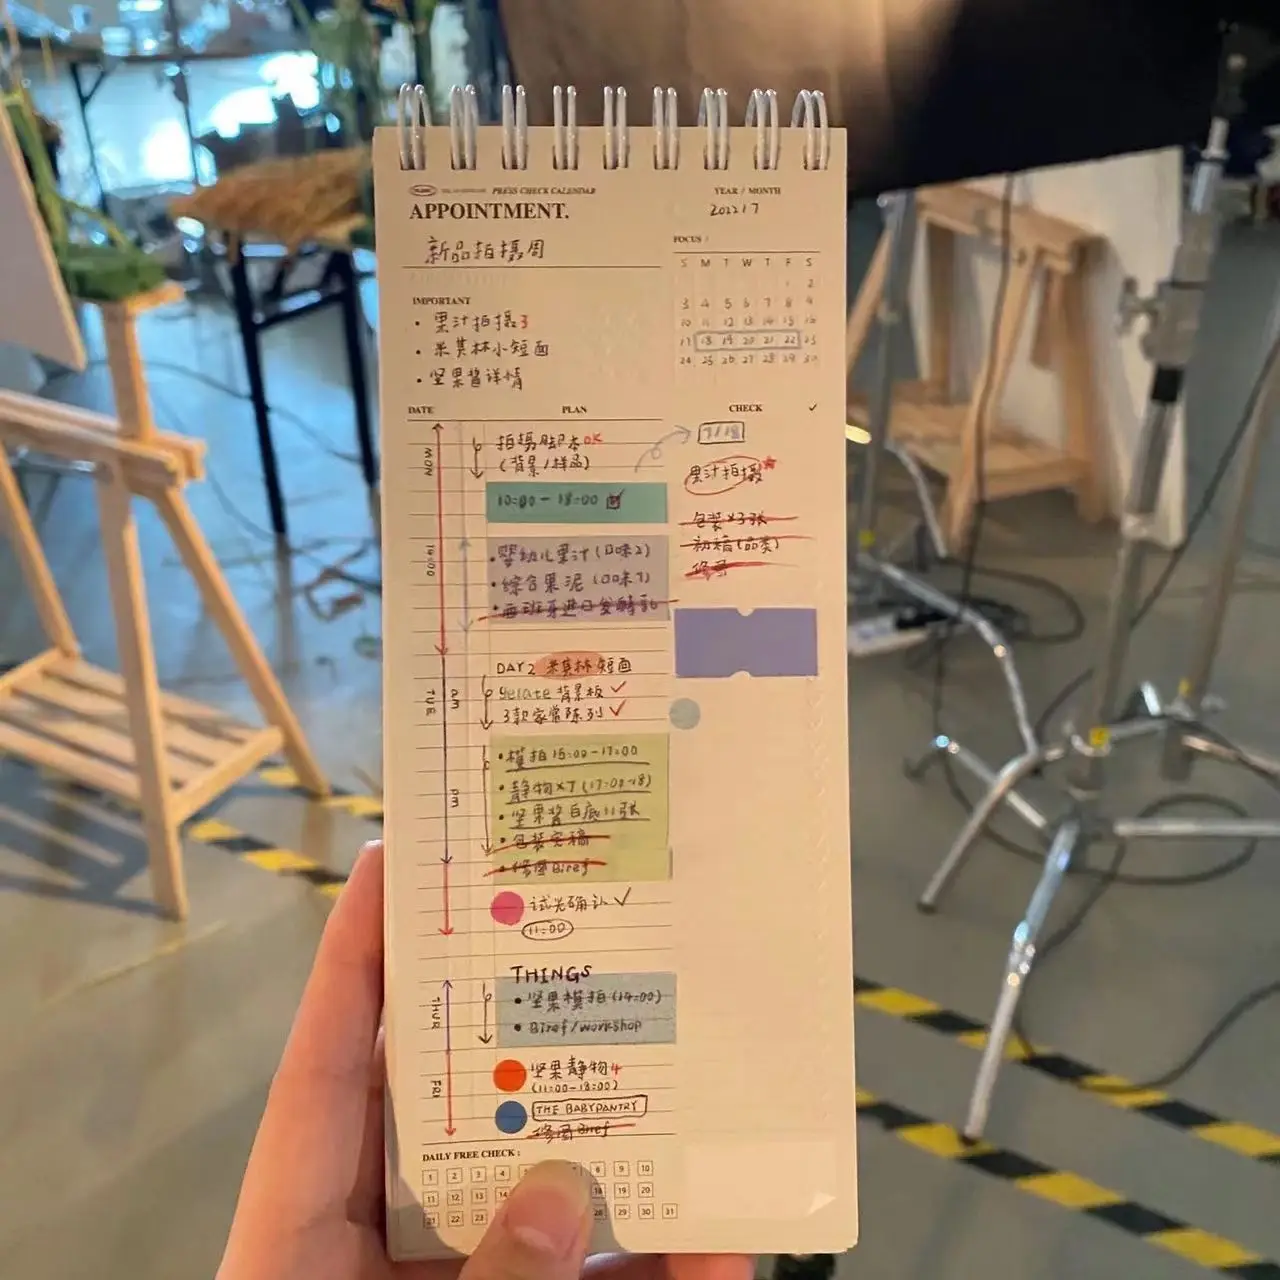 PRESS CHECK CALENDAR
APPOINTMENT.
YEAR / MONTH
2022 / 7
新品拍摄周
FOCUS /
S M T W T F S
1 2
3 4 5 6 7 8 9
10 11 12 13 14 15 16
17 18 19 20 21 22 23
24 25 26 27 28 29 30
IMPORTANT
• 果汁拍摄3
• 米其林小短面
• 坚果酱详情
DATE PLAN CHECK ✓
MON
拍摄脚本OK
(背景/样品)
10:00 - 18:00
14:00
• 婴幼儿果汁(口味2)
• 综合果泥(口味7)
• 西班牙进口发酵乳
7/18
果汁拍摄
包装×3张
初稿(品类)
修图
TUE
DAY2 米其林短面
am
gelate 背景板 ✓
3款家常陈列 ✓
pm
• 模拍 15:00-17:00
• 静物×7(17:00-18)
• 坚果酱白底11张
• 包装完稿
• 修图Biref
试光确认 ✓
11:00
THINGS
THUR
• 坚果模拍(14:00)
• Biref/workshop
FRI
坚果静物4
(11:00-18:00)
THE BABYPANTRY
修图Biref
DAILY FREE CHECK :
1 2 3 4 8 9 10
11 12 13 14 18 19 20
21 22 23 28 29 30 31